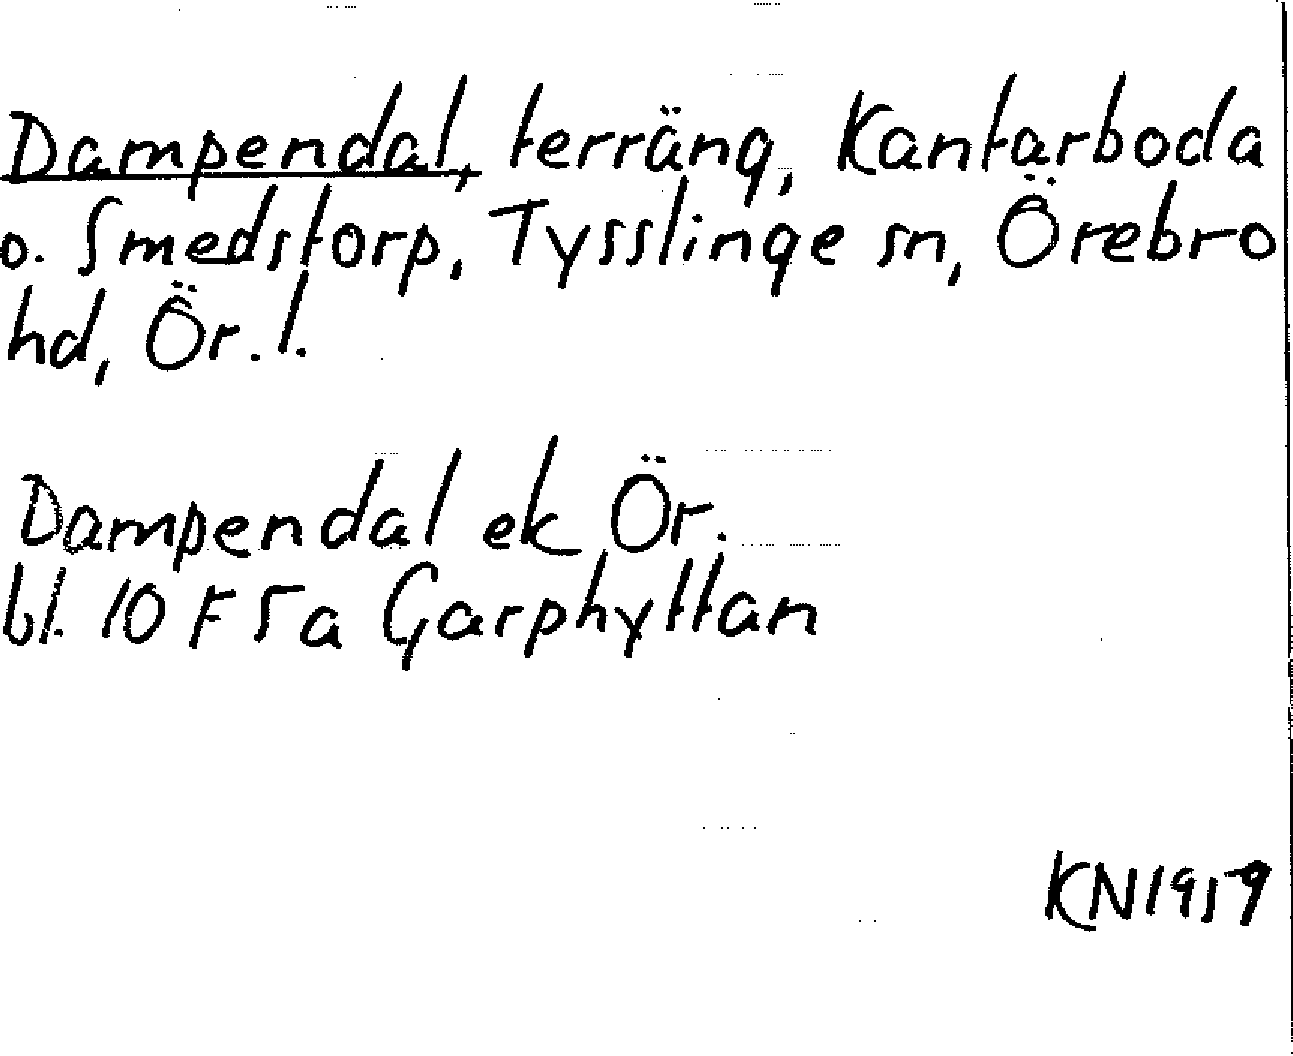 Dampendal, terräng, Kantarboda
o. Smedstorp, Tysslinge sn, Örebro
hd, Ör. l.
Dampendal ek Ör.
bl. 10 F 5a Garphyttan